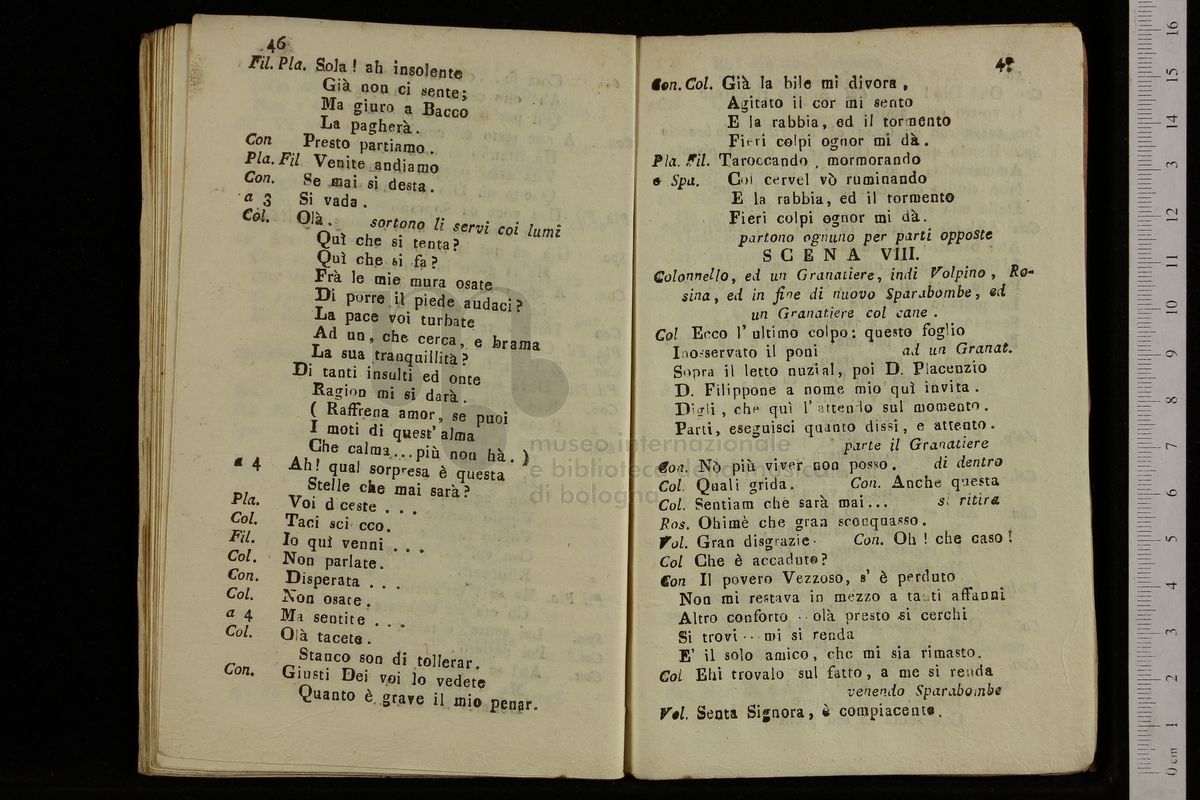 46
Fil. Pla. Sola! ah insolente
Già non ci sente;
Ma giuro a Bacco
La pagherà.
Con Presto partiamo.
Pla. Fil Venite andiamo
Con. Se mai si desta.
a 3 Si vada.
Col. Olà. sortono li servi coi lumi
Quì che si tenta?
Quì che si fa?
Frà le mie mura osate
Di porre il piede audaci?
La pace voi turbate
Ad un, che cerca, e brama
La sua tranquillità?
Di tanti insulti ed onte
Ragion mi si darà.
( Raffrena amor, se puoi
I moti di quest' alma
Che calma... più non hà. )
a 4 Ah! qual sorpresa è questa
Stelle che mai sarà?
Pla. Voi d ceste . . .
Col. Taci sci cco.
Fil. Io quì venni . . .
Col. Non parlate.
Con. Disperata . . .
Col. Non osate.
a 4 Ma sentite . . .
Col. Olà tacete.
Stanco son di tollerar.
Con. Giusti Dei voi lo vedete
Quanto è grave il mio penar.
47
Con. Col. Già la bile mi divora,
Agitato il cor mi sento
E la rabbia, ed il tormento
Fieri colpi ognor mi dà.
Pla. Fil. Taroccando, mormorando
e Spa. Col cervel vò ruminando
E la rabbia, ed il tormento
Fieri colpi ognor mi dà.
partono ognuno per parti opposte
SCENA VIII.
Colonnello, ed un Granatiere, indi Volpino, Ro-
sina, ed in fine di nuovo Sparabombe, ed
un Granatiere col cane.
Col Ecco l' ultimo colpo: questo foglio
Inosservato il poni ad un Granat.
Sopra il letto nuzial, poi D. Placenzio
D. Filippone a nome mio quì invita.
Digli, che quì l' attendo sul momento.
Parti, eseguisci quanto dissi, e attento.
parte il Granatiere
Con. Nò più viver non posso. di dentro
Col. Quali grida. Con. Anche questa
Col. Sentiam che sarà mai... si ritira
Ros. Ohimè che gran sconquasso.
Vol. Gran disgrazie. Con. Oh! che caso!
Col Che è accaduto?
Con Il povero Vezzoso, s' è perduto
Non mi restava in mezzo a tanti affanni
Altro conforto .. olà presto si cerchi
Si trovi .. mi si renda
E' il solo amico, che mi sia rimasto.
Col Ehi trovalo sul fatto, a me si renda
venendo Sparabombe
Vol. Senta Signora, è compiacente.
museo internazionale
e biblioteca della musica
di bologna